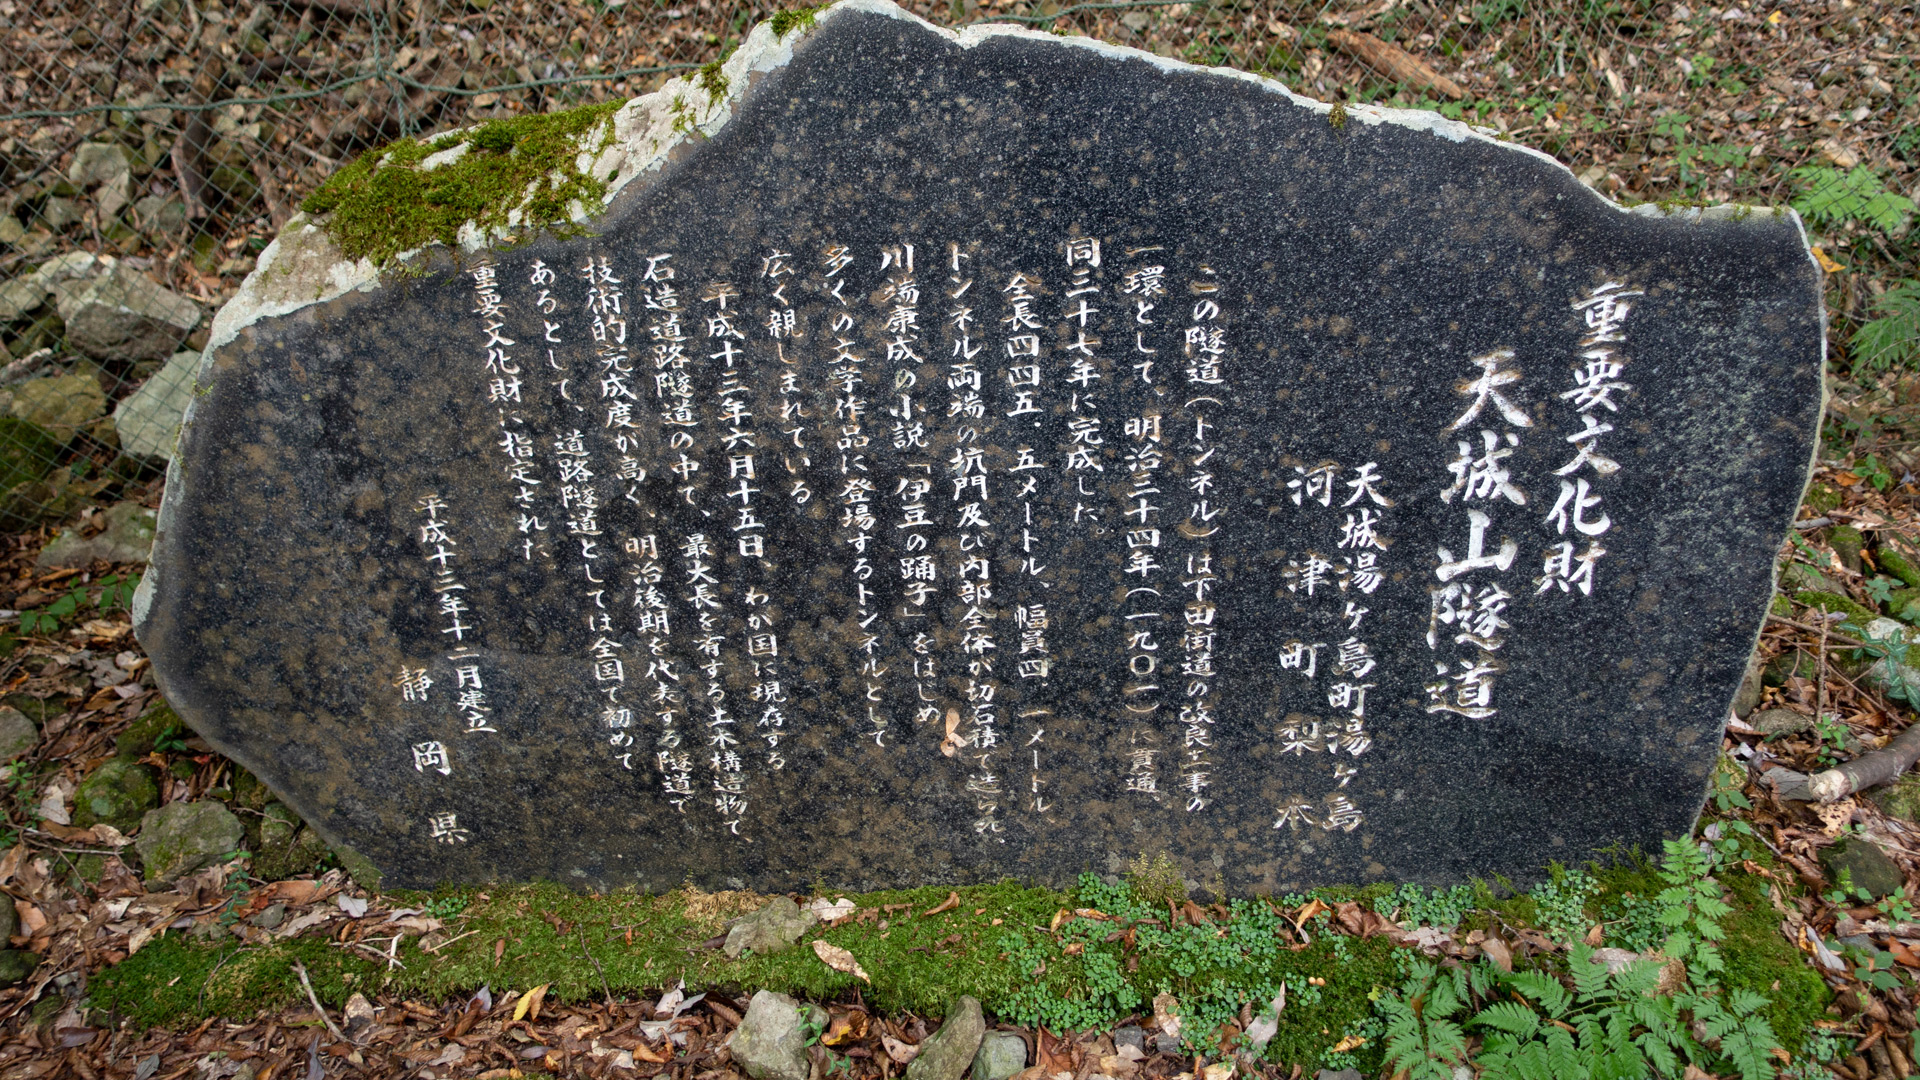 重要文化財
天城山隧道
天城湯ヶ島町湯ヶ島
河津町梨本
この隧道（トンネル）は下田街道の改良工事の
一環として、明治三十四年（一九〇一）に貫通、
同三十七年に完成した。
全長四四五．五メートル、幅員四．一メートル
トンネル両端の坑門及び内部全体が切石積で造られ、
川端康成の小説「伊豆の踊子」をはじめ
多くの文学作品に登場するトンネルとして
広く親しまれている
平成十三年六月十五日、わが国に現存する
石造道路隧道の中で、最大長を有する土木構造物で、
技術的完成度が高く、明治後期を代表する隧道で
あるとして、道路隧道としては全国で初めて
重要文化財に指定された
平成十三年十二月建立
静岡県